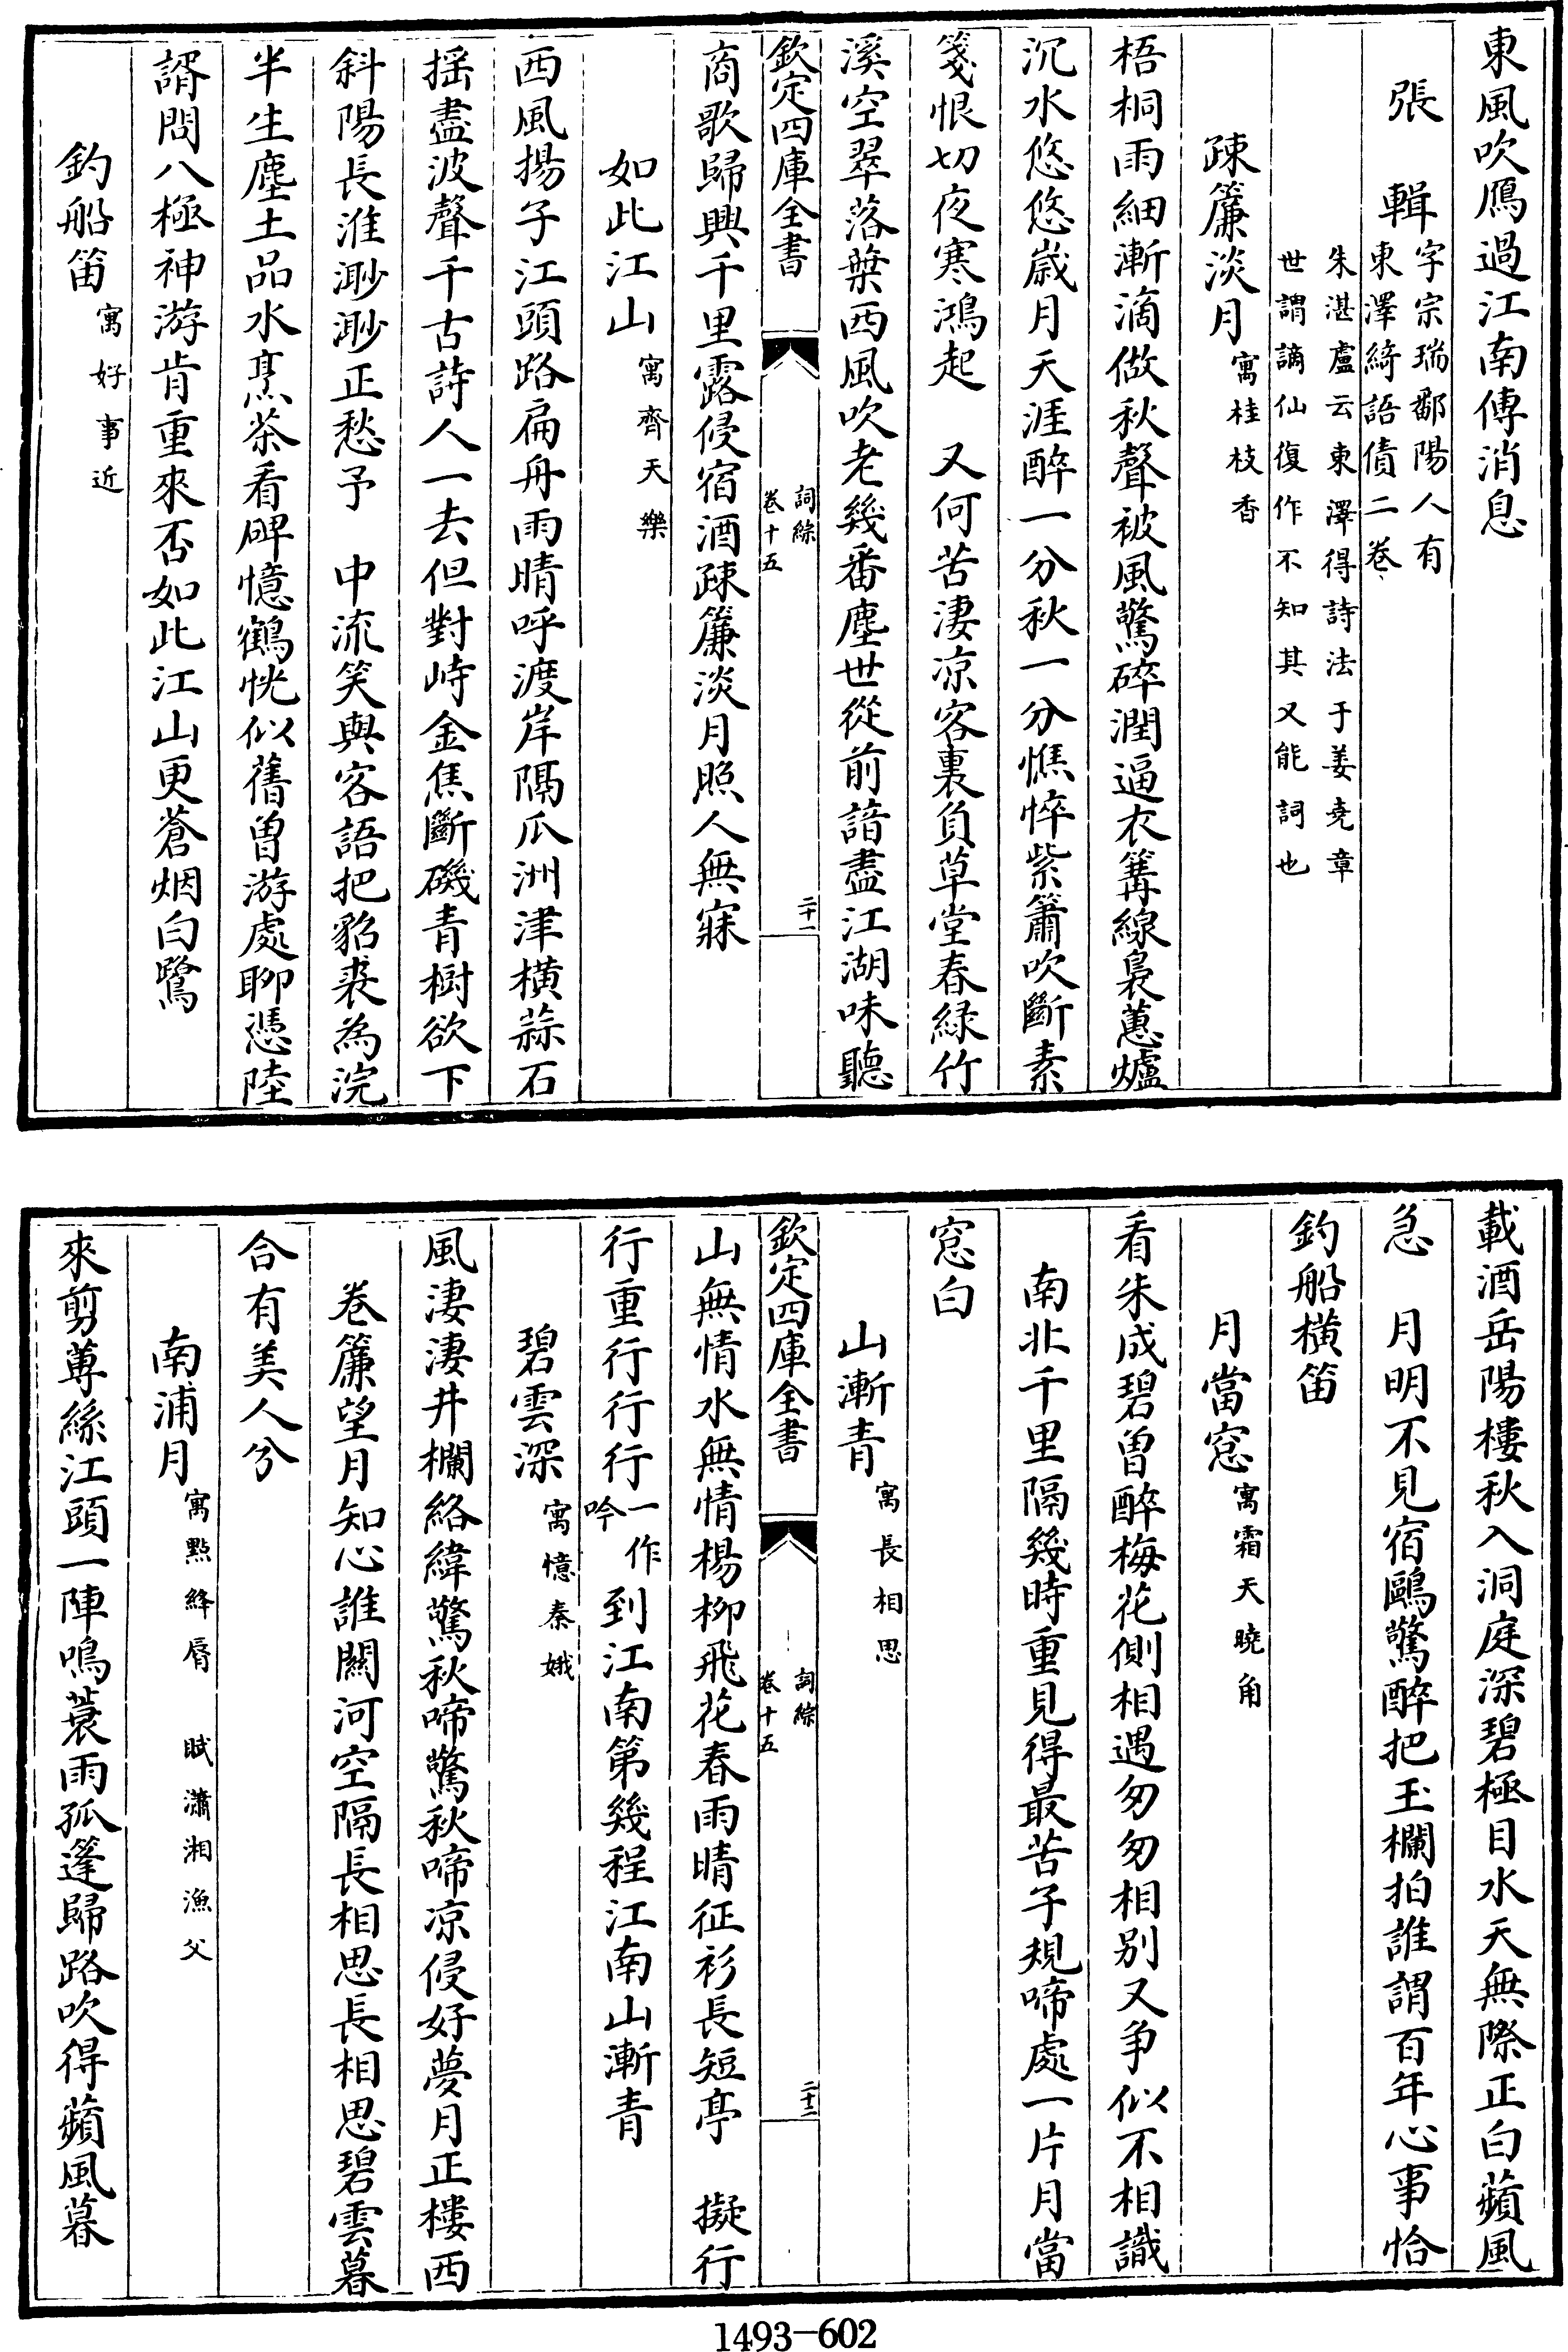 東風吹鴈過江南傳消息
張　輯字宗瑞鄱陽人有東澤綺語債二卷
朱湛盧云東澤得詩法于姜堯章世謂謫仙復作不知其又能詞也
疎簾淡月寓桂枝香
梧桐雨細漸滴做秋聲被風驚碎潤逼衣篝線裊蕙爐
沉水悠悠歲月天涯醉一分秋一分憔悴紫簫吹斷素
箋恨切夜寒鴻起　又何苦淒涼客裏負草堂春綠竹
溪空翠落葉西風吹老幾番塵世從前諳盡江湖味聽
欽定四庫全書　詞綜卷十五　二十一
商歌歸興千里露侵宿酒疎簾淡月照人無寐
如此江山寓齊天樂
西風揚子江頭路扁舟雨晴呼渡岸隔瓜洲津橫蒜石
搖盡波聲千古詩人一去但對峙金焦斷磯青樹欲下
斜陽長淮渺渺正愁予　中流笑與客語把貂裘為浣
半生塵土品水烹茶看碑憶鶴恍似舊曾游處聊憑陸
諝問八極神游肯重來否如此江山更蒼烟白鷺
釣船笛寓好事近
載酒岳陽樓秋入洞庭深碧極目水天無際正白蘋風
急　月明不見宿鷗驚醉把玉欄拍誰謂百年心事恰
釣船橫笛
月當窓寓霜天曉角
看朱成碧曾醉梅花側相遇匆匆相別又爭似不相識
南北千里隔幾時重見得最苦子規啼處一片月當
窓白
山漸青寓長相思
欽定四庫全書　詞綜卷十五　二十二
山無情水無情楊柳飛花春雨晴征衫長短亭　擬行
行重行行行一作吟到江南第幾程江南山漸青
碧雲深寓憶秦娥
風淒淒井欄絡緯驚秋啼驚秋啼涼侵好夢月正樓西
卷簾望月知心誰關河空隔長相思長相思碧雲暮
合有美人兮
南浦月寓點絳脣　賦瀟湘漁父
來剪蓴絲江頭一陣鳴蓑雨孤篷歸路吹得蘋風暮
1493—602